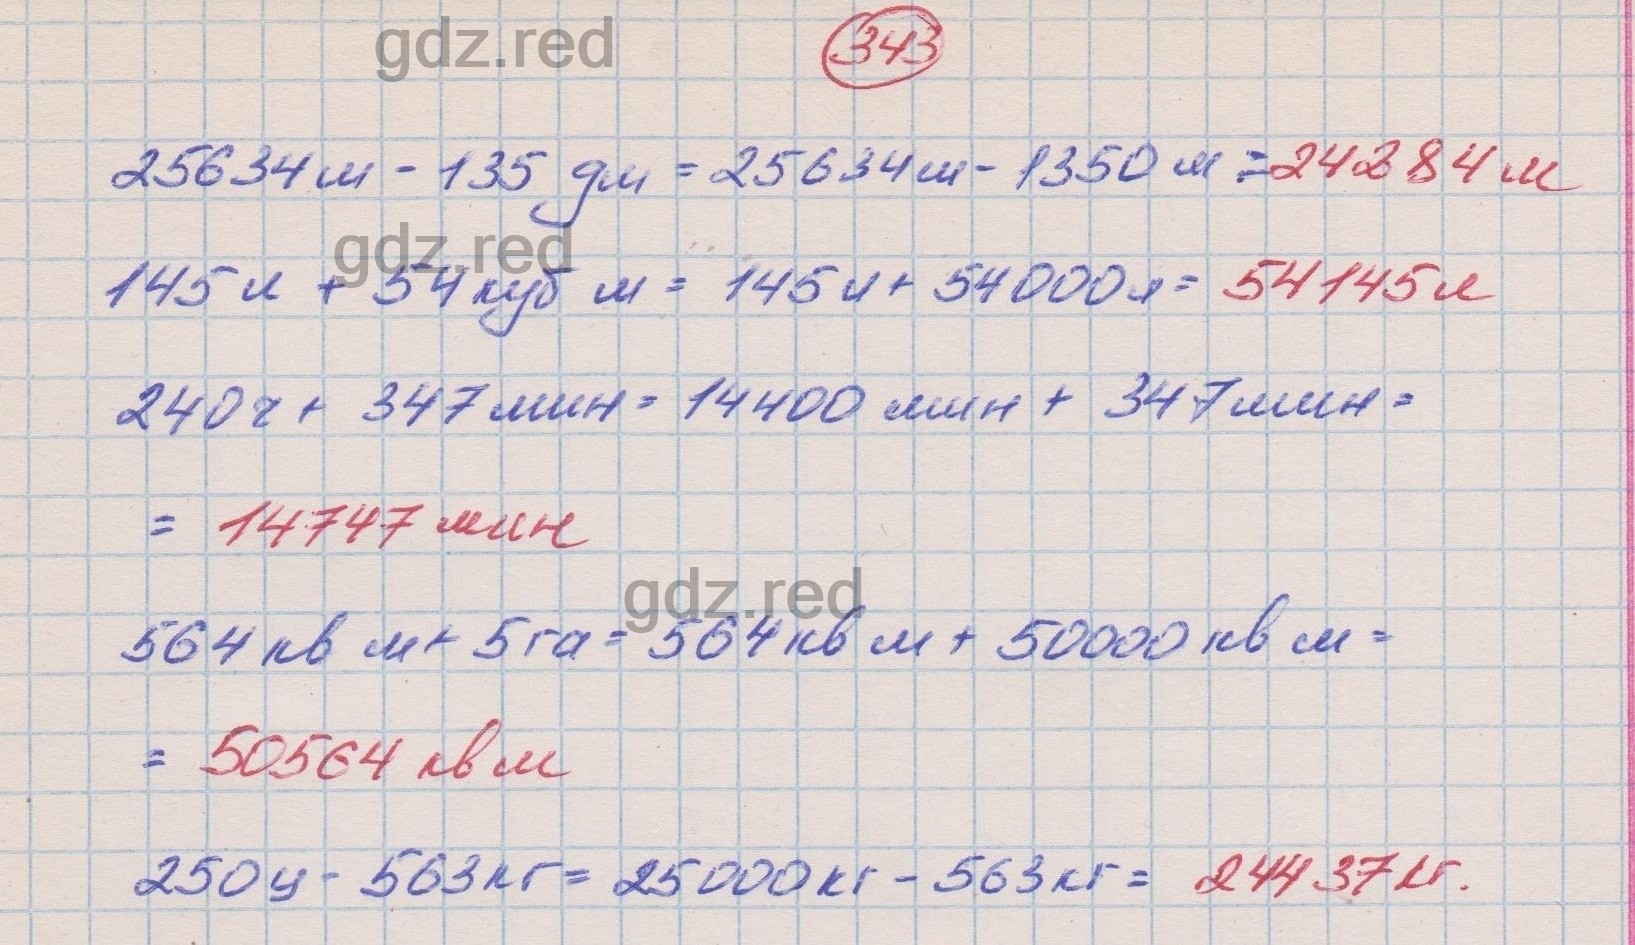 gdz.red
343
25634 м - 135 дм = 25634 м - 1350 м = 24284 м
gdz.red
145 л + 54 куб м = 145 л + 54000 л = 54145 л
240 ч + 347 мин = 14400 мин + 347 мин =
= 14747 мин
gdz.red
564 кв м + 5 га = 564 кв м + 50000 кв м =
= 50564 кв м
250 ц - 563 кг = 25000 кг - 563 кг = 24437 кг.